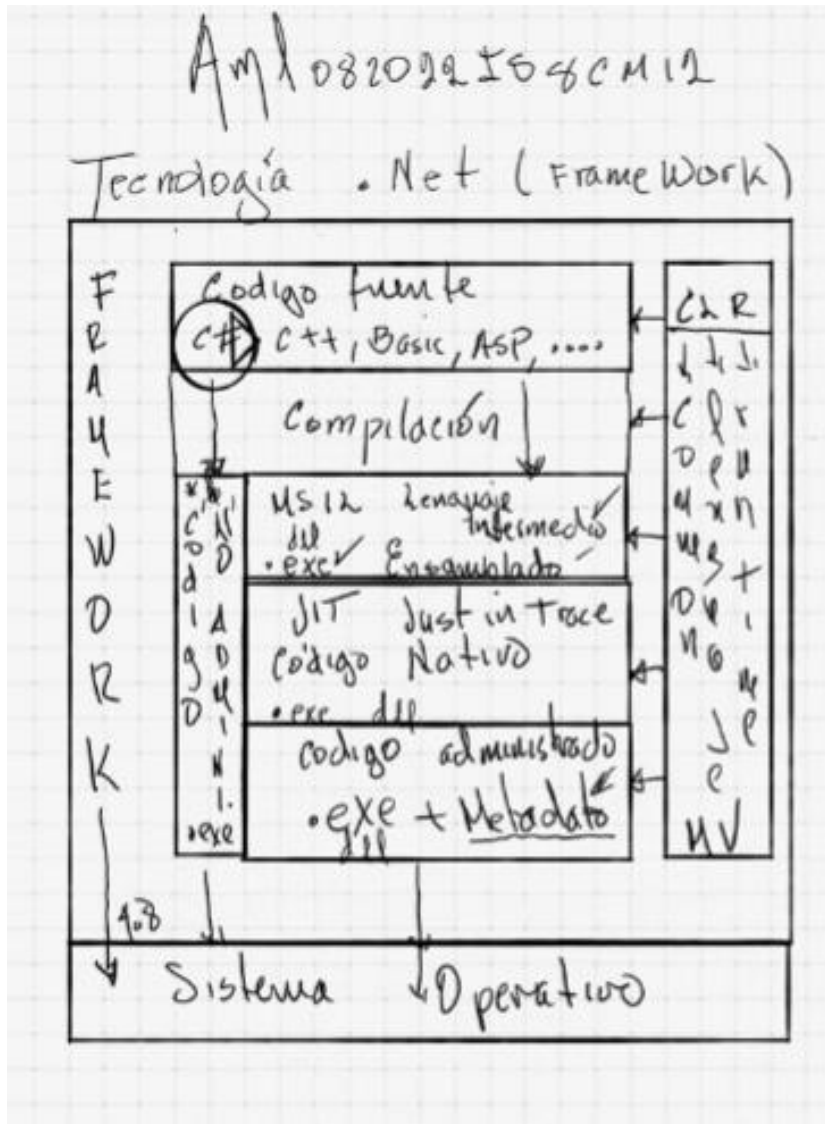 Aml 082022IS8CM12
Tecnología .Net (FrameWork)
FRAMEWORK
4.8
Codigo fuente
C# C++, Basic, ASP, ....
Compilación
Código
NO ADMINI.
.exe
MSIL Lenguaje Intermedio
dll
.exe Ensamblado
JIT Just in Trace
Código Nativo
.exe dll
Codigo administrado
.exe + Metadato
dll
CLR
Common
runtime
MV
Sistema Operativo